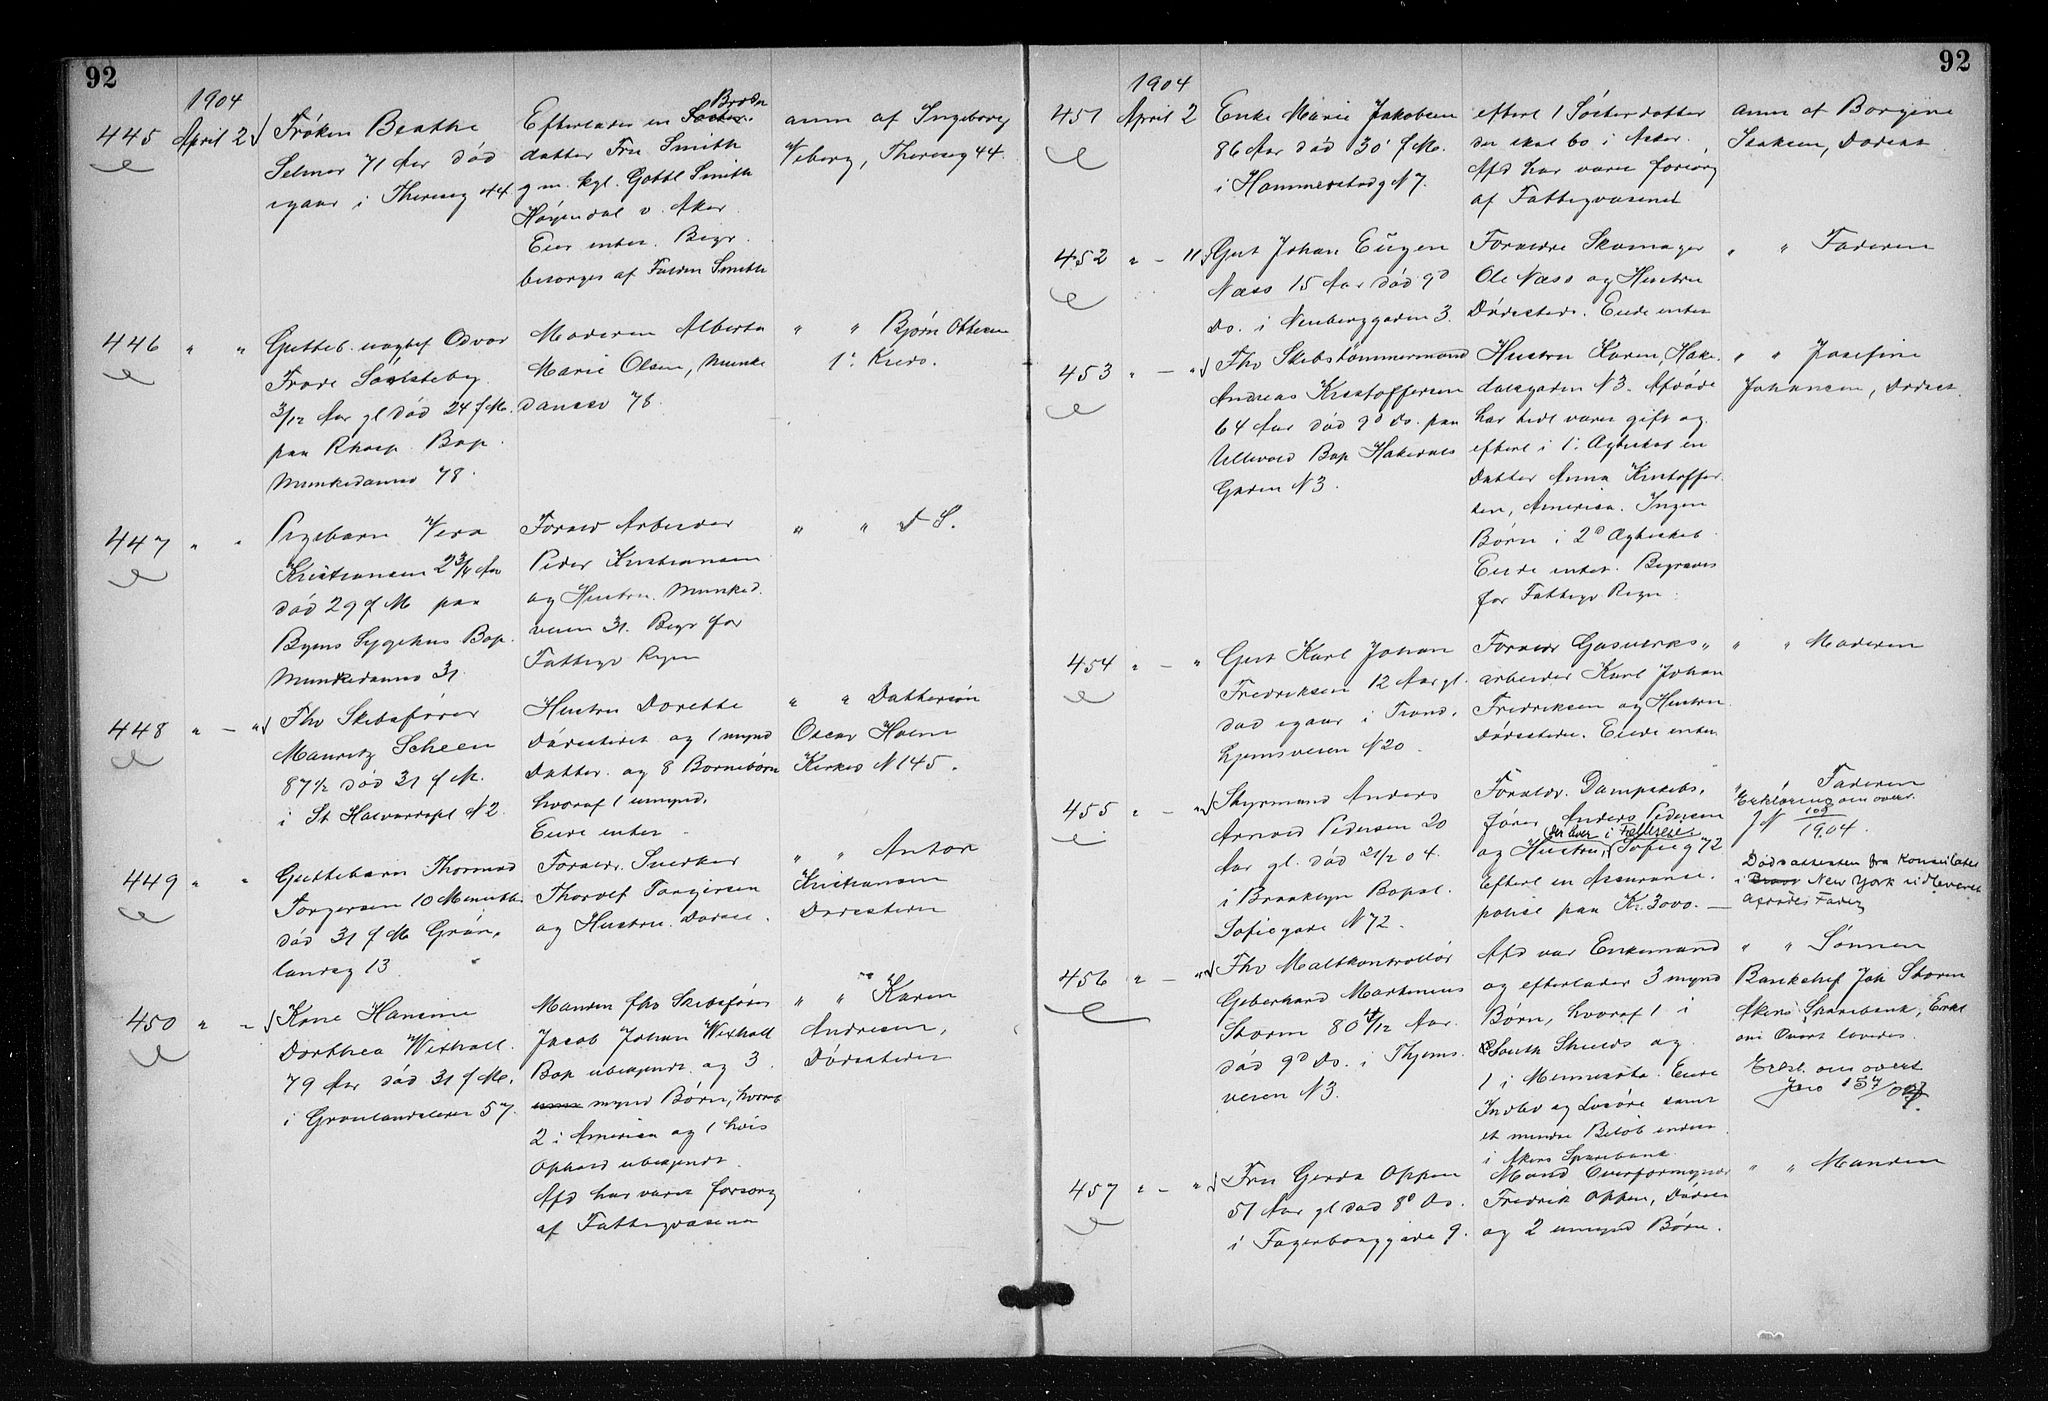 92
1904
445 April 2 Frøken Beathe
Selmer 71 Aar død
igaar i Thereseg 44
Efterlader en Broder
datter Fru Smith
g m. kgl. Gottl Smith
Høyendal v. Aker.
Eier intet. Begr.
besørges af Fuldm Smith
anm af Ingeborg
Viberg, Thereseg 44.
446 " " Gutteb. uægtef Odvar
Frode
3/12 Aar gl død 24 f M.
paa Rhosp. Bop.
Munkedamsv 78.
Moderen Alberta
Marie Olsen, Munke
damsv 78.
" " Bjørn Ottesen
1: Kreds.
447 " " Pigebarn Vera
Kristiansen 2 3/4 Aar
død 29 f M paa
Byens Sygehus Bop.
Munkedamsv 31.
Foræld Arbeider
Peder Kristiansen
og Hustru. Munked.
veien 31. Begr for
Fattigv Regn
" " d S.
448 " — " Fhv Skibsfører
Mauritz Scheen
87 1/2 død 31 f M.
i St Halvardspl N 2.
Hustru Dorette
Dødsstedet og 1 mynd
Datter. og 8 Børnebørn
hvoraf 1 umynd.
Eiede intet.
" " Dattersøn
Oscar Holm
Kirkev N 145.
449 " " Guttebarn Thormod
Torgersen 10 Minutter
død 31 f M Grøn,
landsg 13.
Foræld. Snedker
Thorolf Torgersen
og Hustru. Dødsst.
" " Anton
Kristiansen
Dødsstedet
450 " " Kone Hansine
Dorthea Wixhall.
79 Aar død 31 f M.
i Grønlandsleret 57.
Manden fhv Skibsfører
Jacob Johan Wixhall
Bop ubekjendt. og 3
mynd Børn, hvoraf
2 i Amerika og 1 hvis
Ophold ubekjendt.
Afd har været forsørg
af Fattigvæsenet
" " Karen
Andresen,
Dødsstedet
92
1904
451 April 2 Enke Marie Jakobsen
86 Aar død 30' f M.
i Hammerstadg N 7.
efterl 1 Søsterdatter
der skal bo i Asker.
Afd har været forsørg
af Fattigvæsenet
anm af Borgine
Isaksen, Dødsst
452 " — 11 Gut Johan Eugen
Næss 15 Aar død 9d
Ds. i Neuberggaden 3.
Forældre Skomager
Ole Næss og Hustru
Dødsstedet. Eiede intet
" " Faderen
453 " — " Fhv Skibstømmermand
Andreas Kristoffersen
64 Aar død 9d Ds. paa
Ullevold Bop Hakedals
Gaden N 3.
Hustru Karen, Hake.
dalsgaden N 3. Afdøde
har tidl været gift og
efterl i 1: Ægteskab en
Datter Anna Kristoffer
sen, Amerika. Ingen
Børn i 2d Ægteskab
Eiede intet. Begraves
for Fattigv Regn.
" " Josefine
Johansen, Dødsst.
454 " — " Gut Karl Johan
Fredriksen 12 Aar gl.
død igaar i Trond,
hjemsveien N 20.
Foræld Gasværks,
arbeider Karl Johan
Fredriksen og Hustru
Dødsstedet. Eiede intet
" " Moderen
455 " — " Styrmand Anders
Arnold Pedersen 20
Aar gl. død 21/2 04.
i Brooklyn Bopæl.
Sofiegade N 72.
Foræld. Dampskibs,
fører Anders Pedersen
der lever i Fællesеie
og Hustru, Sofieg 72
Efterl en Assurance,
police paa Kr. 3000. —
" Faderen
Erklæring om overt.
J N 108/1904.
Dødsattesten fra Konsulatet
i New York udleveret
afdødes Fader
456 " — " Fhv Maltkontrollør
Geberhard Martinius
Storm 80 4/12 Aar.
død 9d Ds. i Thjems.
veien N 3.
Afd var Enkemand
og efterlader 3 mynd
Børn, hvoraf 1 i
South Shields og
1 i Minnesota. Eiede
Indbo og Løsøre samt
et mindre Beløb indest
i Akers Sparebank.
" " Sønnen
Bankchef Joh Storm
Akers Sparebank, Erkl
om Overt lovedes.
Erkl. om overt
Jno 157/04
457 " — " Fru Gerda Oppen
51 Aar gl død 8d Ds.
i Fagerborggade 9.
Mand Overformynder
Fredrik Oppen, Dødsst
og 2 umynd Børn.
" " Manden